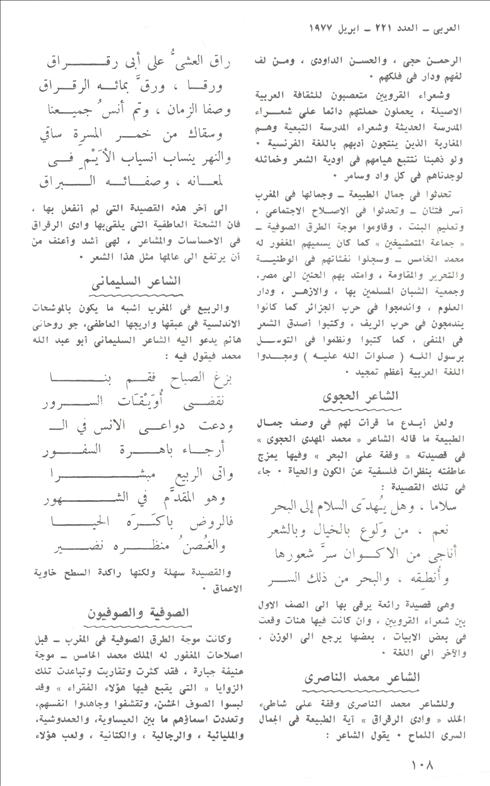 العربى ــ العدد ٢٢١ ــ ابريل ١٩٧٧
الرحمن حجى ، والحسن الداودى ، ومن لف
لفهم ودار فى فلكهم .
وشعراء القرويين متعصبون للثقافة العربية
الاصيلة ، يحملون حملتهم دائما على شعراء
المدرسة الحديثة وشعراء المدرسة التبعية وهم
المغاربة الذين ينتجون أدبهم باللغة الفرنسية .
ولو ذهبنا نتتبع هيامهم فى اودية الشعر وخمائله
لوجدناهم فى كل واد وسامر .
تحدثوا فى جمال الطبيعة ــ وجمالها فى المغرب
آسر فتان ــ وتحدثوا فى الاصلاح الاجتماعى ،
وتعليم البنت ، وقاوموا موجة الطرق الصوفية ــ
« جماعة المتمشيخين » كما كان يسميهم المغفور له
محمد الخامس ــ وسجلوا نفثاتهم فى الوطنية
والتحرير والمقاومة ، وامتد بهم الحنين الى مصر،
وجمعية الشبان المسلمين بها ، والازهر ، ودار
العلوم ، واندمجوا فى حرب الجزائر كما كانوا
يندمجون فى حرب الريف ، وكتبوا أصدق الشعر
فى المنفى ، كما كتبوا ونظموا فى التوسل
برسول اللـه ( صلوات الله عليه ) ومجـدوا
اللغة العربية أعظم تمجيد .
الشاعر الحجوى
ولعل أبدع ما قرأت لهم فى وصف جمال
الطبيعة ما قاله الشاعر « محمد المهدى الحجوى »
فى قصيدته « وقفة على البحر » وفيها يمزج
عاطفته بنظرات فلسفية عن الكون والحياة . جاء
فى تلك القصيدة :
سلاما ، وهل يُهدَى السلام إلى البحر
نعم ، من وَلوع بالخيال وبالشعر
أناجي من الاكـوان سرَّ شعورها
وأُنطِقه ، والبحر من ذلك السـر
وهى قصيدة رائعة يرقى بها الى الصف الاول
بين شعراء القرويين ، وان كانت فيها هنات وقعت
فى بعض الابيات ، بعضها يرجع الى الوزن ،
والآخر الى اللغة .
الشاعر محمد الناصرى
وللشاعر محمد الناصرى وقفة على شاطىء
الخلد « وادى الرقراق » آية الطبيعة فى الجمال
السرى اللماح . يقول الشاعر :
راق العشيُّ على أبي رقـــراق
ورقـا ، ورقَّ بمائـه الرقـراق
وصفا الزمان ، وتم أنسُ جميعنا
وسقاك من خمـر المسرة ساقي
والنهر ينساب انسياب الأَيْـم فـى
لمعانه ، وصفـائـه الـبراق
الى آخر هذه القصيدة التى لم أنفعل بها ،
فان الشحنة العاطفية التى يلقى بها وادى الرقراق
فى الاحساسات والمشاعر ، لهى أشد وأعنف من
أن يرتفع الى عالمها مثل هذا الشعر .
الشاعر السليمانى
والربيع فى المغرب اشبه ما يكون بالموشحات
الاندلسية فى عبقها واريجها العاطفى، جو روحانى
هائم يدعو اليه الشاعر السليمانى أبو عبد الله
محمد فيقول فيه :
بزغ الصباح فقـم بنــا
نقضـى أُوَيْـقـات السـرور
ودعت دواعـى الانس في الـ
أرجـاء باهـرة السفـور
واتى الربيع مبشــرا
وهو المقدَّم في الشـهور
فالروض باكـرَه الحيـا
والغُصنُ منظـره نضـير
والقصيدة سهلة ولكنها راكدة السطح خاوية
الاعماق .
الصوفية والصوفيون
وكانت موجة الطرق الصوفية فى المغرب ــ قبل
اصلاحات المغفور له الملك محمد الخامس ــ موجة
عنيفة جبارة ، فقد كثرت وتقاربت وتباعدت تلك
الزوايا « التى يقبع فيها هؤلاء الفقراء » وقد
لبسوا الصوف الخشن، وتقشفوا وجاهدوا انفسهم،
وتعددت أسماؤهم ما بين العيساوية، والحمدوشية،
والمليانية ، والرجالية ، والكتانية ، ولعب هؤلاء
١٠٨